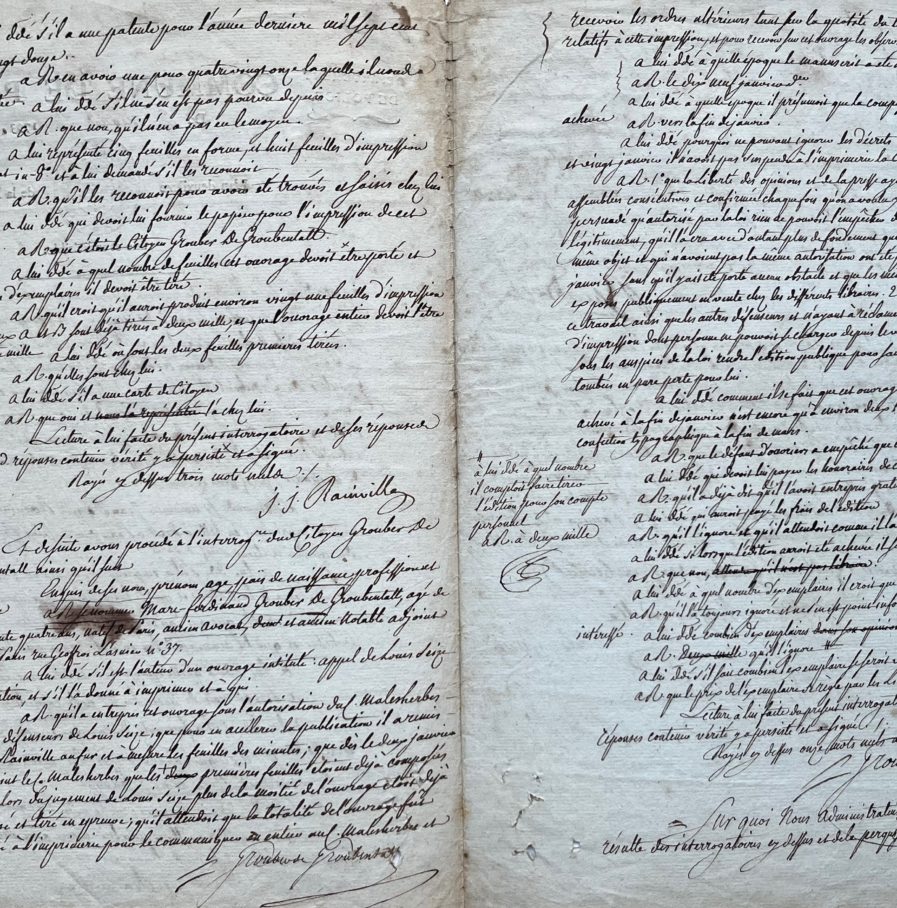 ddé s'il a une patente pour l'année derniere mil sept cent
vingt douze.
a R. en avoir une pour quatre vingt onze laquelle il
a lui ddé s'il ne s'en est pas pourvu depuis
a R. que non, qu'il n'en a pas eu le moyen.
a lui représenté cinq feuilles en forme, et huit feuilles d'impression
in-8° et a lui demandé s'il les reconnoit
a R. qu'il les reconnoit pour avoir eté trouvés et saisies chez lui
a lui ddé qui devoit lui fournir le papier pour l'impression de cet
a R. que c'etoit le Citoyen Grouber De Groubentall
a lui ddé à quel nombre de feuilles cet ouvrage devoit être porté et
d'exemplaires il devoit être tiré.
a R. qu'il croit qu'il auroit produit environ vingt une feuilles d'impression
A et B sont déjà tirés a deux mille, et que l'ouvrage entier devoit l'être
mille
a lui ddé où sont les deux feuilles premieres tirées.
a R. qu'elles sont chez lui.
a lui ddé s'il a une carte de Citoyen
a R. que oui et l'a chez lui.
Lecture à lui faite du présent interrogatoire et de ses réponses a
réponses contenir vérité y a persisté et a signé.
Rayé cy dessus trois mots nuls
J. J. Rainville
Et desuite avons procédé à l'interrog.re du Citoyen Grouber De
ainsi qu'il suit
Enquis de ses nom, prénom, age, païs de naissance, profession et
a R. se nommer Marc ferdinand Grouber De Groubentall, agé de
quatre ans, natif de Paris, ancien avocat, et ancien Notable adjoint
rue Geoffroi Lasnier n° 37.
a lui ddé s'il est l'auteur d'un ouvrage intitulé: appel de Louis Seize
et s'il l'a donné à imprimer et à qui
a R. qu'il a entrepris cet ouvrage sous l'autorisation du S. Malesherbes
défenseur de Louis Seize; que pour en accelerer la publication il a remis
Rainville au fur et à mesure les feuilles des minutes; que dès le deux janvier
le S. Malesherbes que les premières feuilles etoient déjà composées
lors du jugement de Louis Seize plus de la moitié de l'ouvrage etoit déjà
et tiré en epreuve; qu'il attendoit que la totalité de l'ouvrage fut
à l'imprimerie pour le communiquer en entier au S. Malesherbes et
Grouber de Groubentall
recevoir les ordres ultérieurs tant sur la quotité du
relatifs à cette impression, et pour recevoir sur cet ouvrage les
a lui ddé à quelle époque le manuscrit a eté
a R. le dix neuf janvier
a lui ddé à quelle époque il présumoit que la
achevée
a R. vers la fin de janvier.
a lui ddé pourquoi ne pouvant ignorer les décrets
et vingt janvier il n'avoit pas suspendu à l'imprimerie la
a R. 1° que la Liberté des opinions et de la presse
assemblées consecutives et confirmée chaque fois
persuadé qu'autorisé par la loi rien ne pouvoit l'empêcher
légitimement, qu'il l'a cru avec d'autant plus de fondement que
même objet et qui n'avoient pas la même autorisation ont eté
janvier sans qu'il y ait eté porté aucun obstacle et que les
exposés publiquement en vente chez les différents libraires.
ce travail ainsi que les autres défenseurs et n'ayant
d'impression dont personne ne pouvoit se charger depuis le
sous les auspices de la loi rendre l'édition publique pour
tombés en pure perte pour lui.
a lui ddé comment il se fait que cet ouvrage
achevé à la fin de janvier n'est encore qu'à environ
confection typographique à la fin de mars.
a R. que le défaut d'ouvriers a empêché que
a lui ddé qui devoit lui payer les honoraires de
a R. qu'il a déjà dit qu'il l'avoit entrepris
a lui ddé qui auroit payé les frais de l'édition
a R. qu'il l'ignore et qu'il attendoit
a lui ddé si lorsque l'édition auroit eté achevée il
a R. que non,
a lui ddé à quel nombre d'exemplaires il croit que
a R. qu'il l'a toujours ignoré et n'en est point
intéressé.
a lui ddé combien d'exemplaires
a R. Deux mille qu'il l'ignore
a lui ddé s'il sait combien l'exemplaire se seroit
a R. que le prix de l'exemplaire se règle par les
Lecture à lui faite du présent
réponses contenir verité y a persisté et a signé
Rayés cy dessus onze mots nuls
a lui ddé à quel nombre
il comptoit faire tirer
l'édition pour son compte
personnel
a R. à deux mille
Sur quoi Nous Administrateurs
résulte des interrogatoires cy dessus et de la